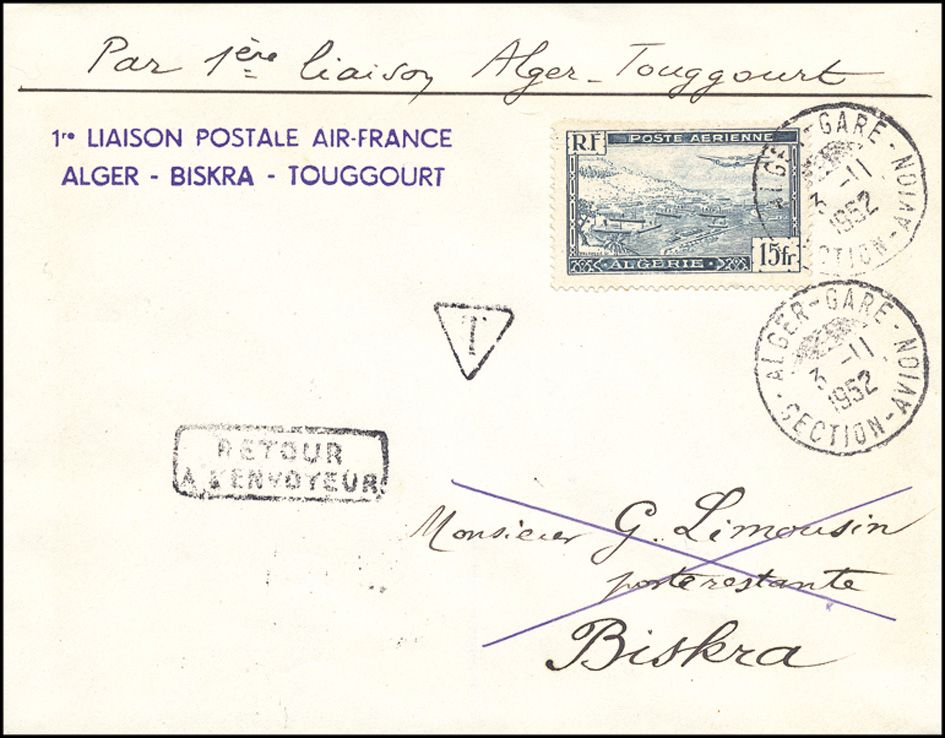 Par 1ère liaison Alger-Touggourt
1re LIAISON POSTALE AIR-FRANCE
ALGER - BISKRA - TOUGGOURT
RF
POSTE AERIENNE
15fr
ALGERIE
ALGER-GARE
3 -11
1952
SECTION-AVION
ALGER-GARE
3 -11
1952
SECTION-AVION
T
RETOUR
A L'ENVOYEUR
Monsieur G. Limousin
poste restante
Biskra